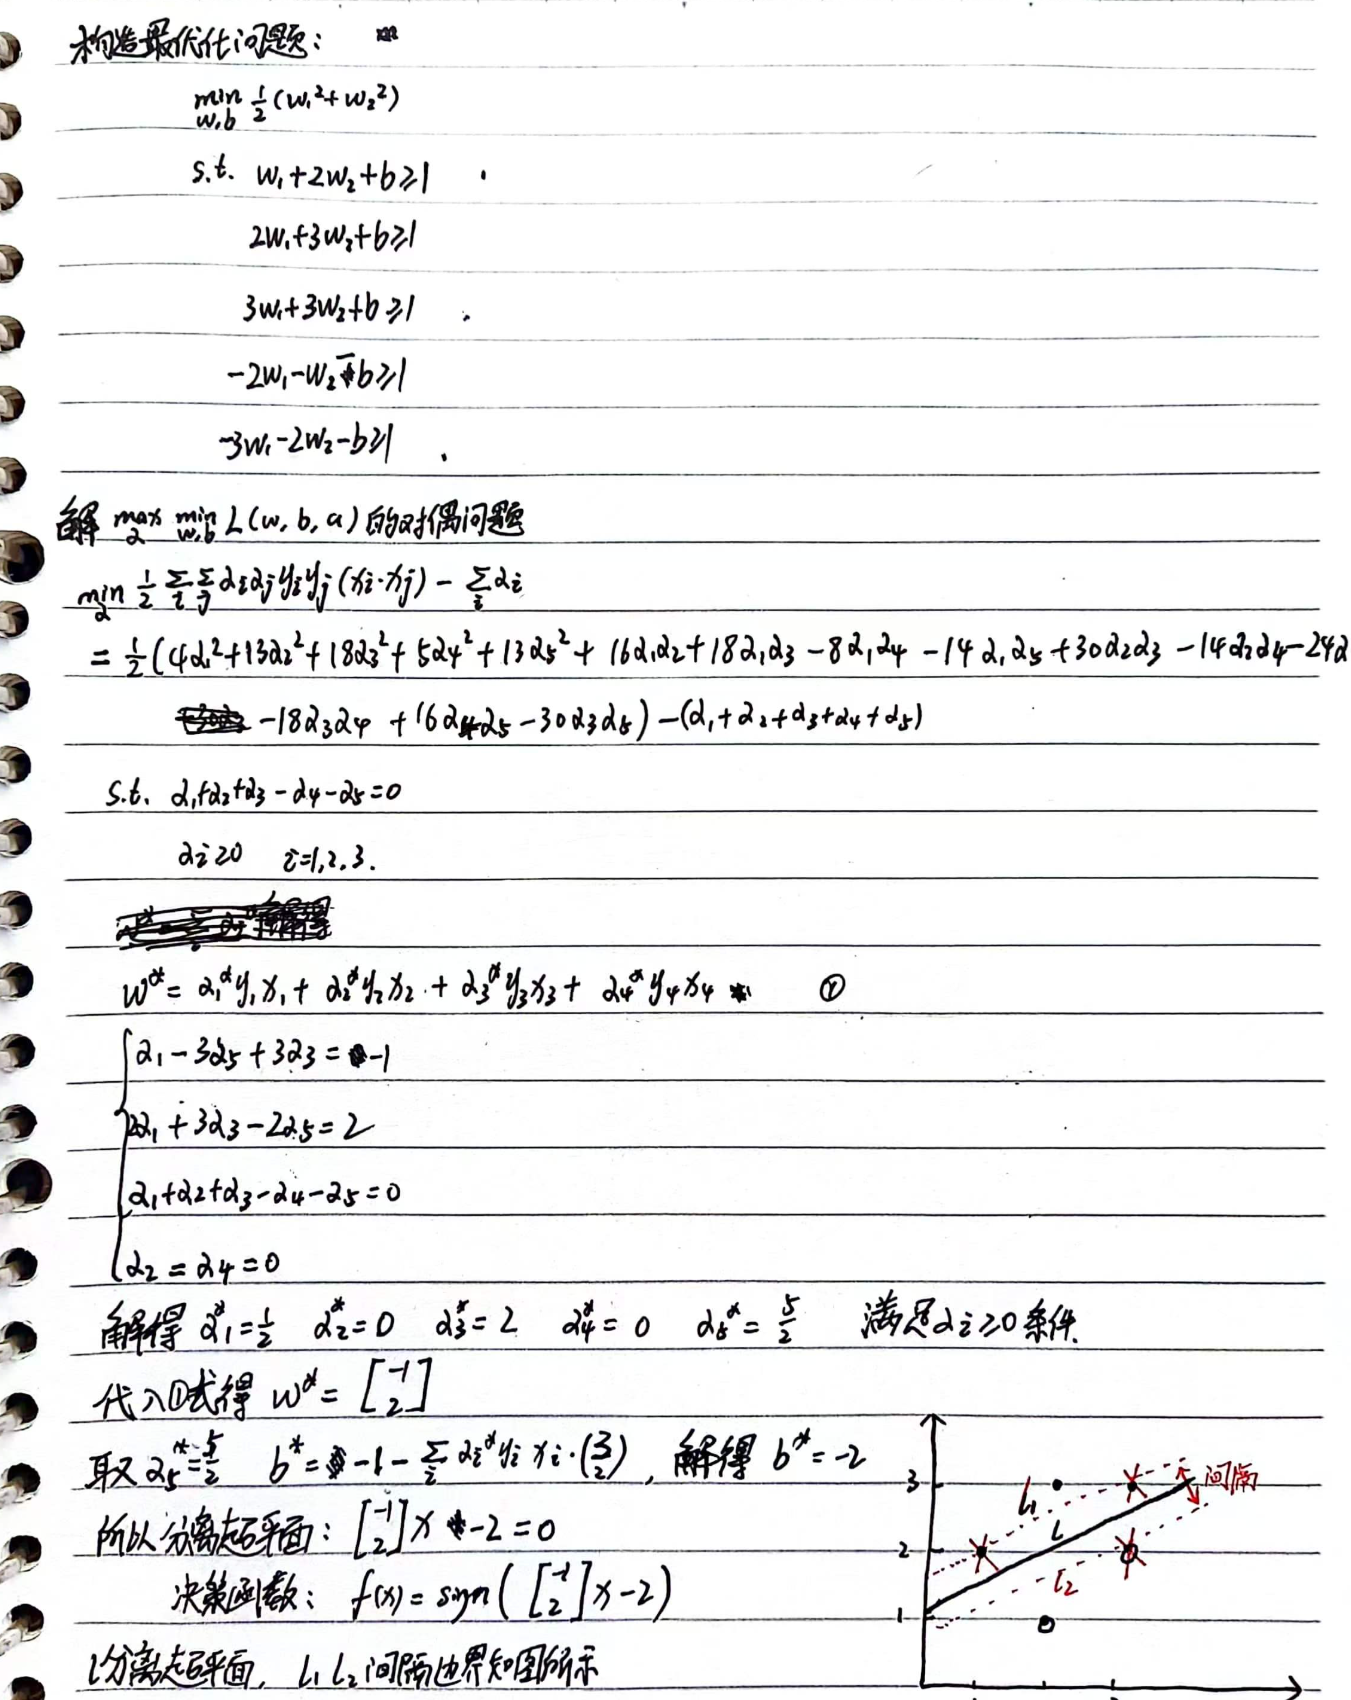 构造最优化问题:
min w,b 1/2 (w₁²+w₂²)
s.t. w₁+2w₂+b≥1
2w₁+3w₂+b≥1
3w₁+3w₂+b≥1
-2w₁-w₂-b≥1
-3w₁-2w₂-b≥1
解 max α min w,b L(w, b, α) 的对偶问题
min α 1/2 Σi Σj αiαjyiyj(xi·xj) - Σi αi
= 1/2 (4α₁²+13α₂²+18α₃²+5α₄²+13α₅²+16α₁α₂+18α₁α₃-8α₁α₄-14α₁α₅+30α₂α₃-14α₂α₄-24α
-18α₃α₄+16α₄α₅-30α₃α₅)-(α₁+α₂+α₃+α₄+α₅)
s.t. α₁+α₂+α₃-α₄-α₅=0
αi≥0 i=1,2,3.
w*= α₁*y₁x₁+α₂*y₂x₂+α₃*y₃x₃+α₄*y₄x₄ ①
α₁-3α₅+3α₃=-1
2α₁+3α₃-2α₅=2
α₁+α₂+α₃-α₄-α₅=0
α₂=α₄=0
解得 α₁*=1/2 α₂*=0 α₃*=2 α₄*=0 α₅*=5/2 满足αi≥0条件.
代入①式得 w*=[-1 2]
取α₅*=5/2 b*=-1-Σi αi*yi xi·(3 2), 解得 b*=-2
所以分离超平面: [-1 2]x-2=0
决策函数: f(x)=sign([-1 2]x-2)
l分离超平面, L₁ L₂间隔边界如图所示
3
2
1
l₁
L
l₂
间隔